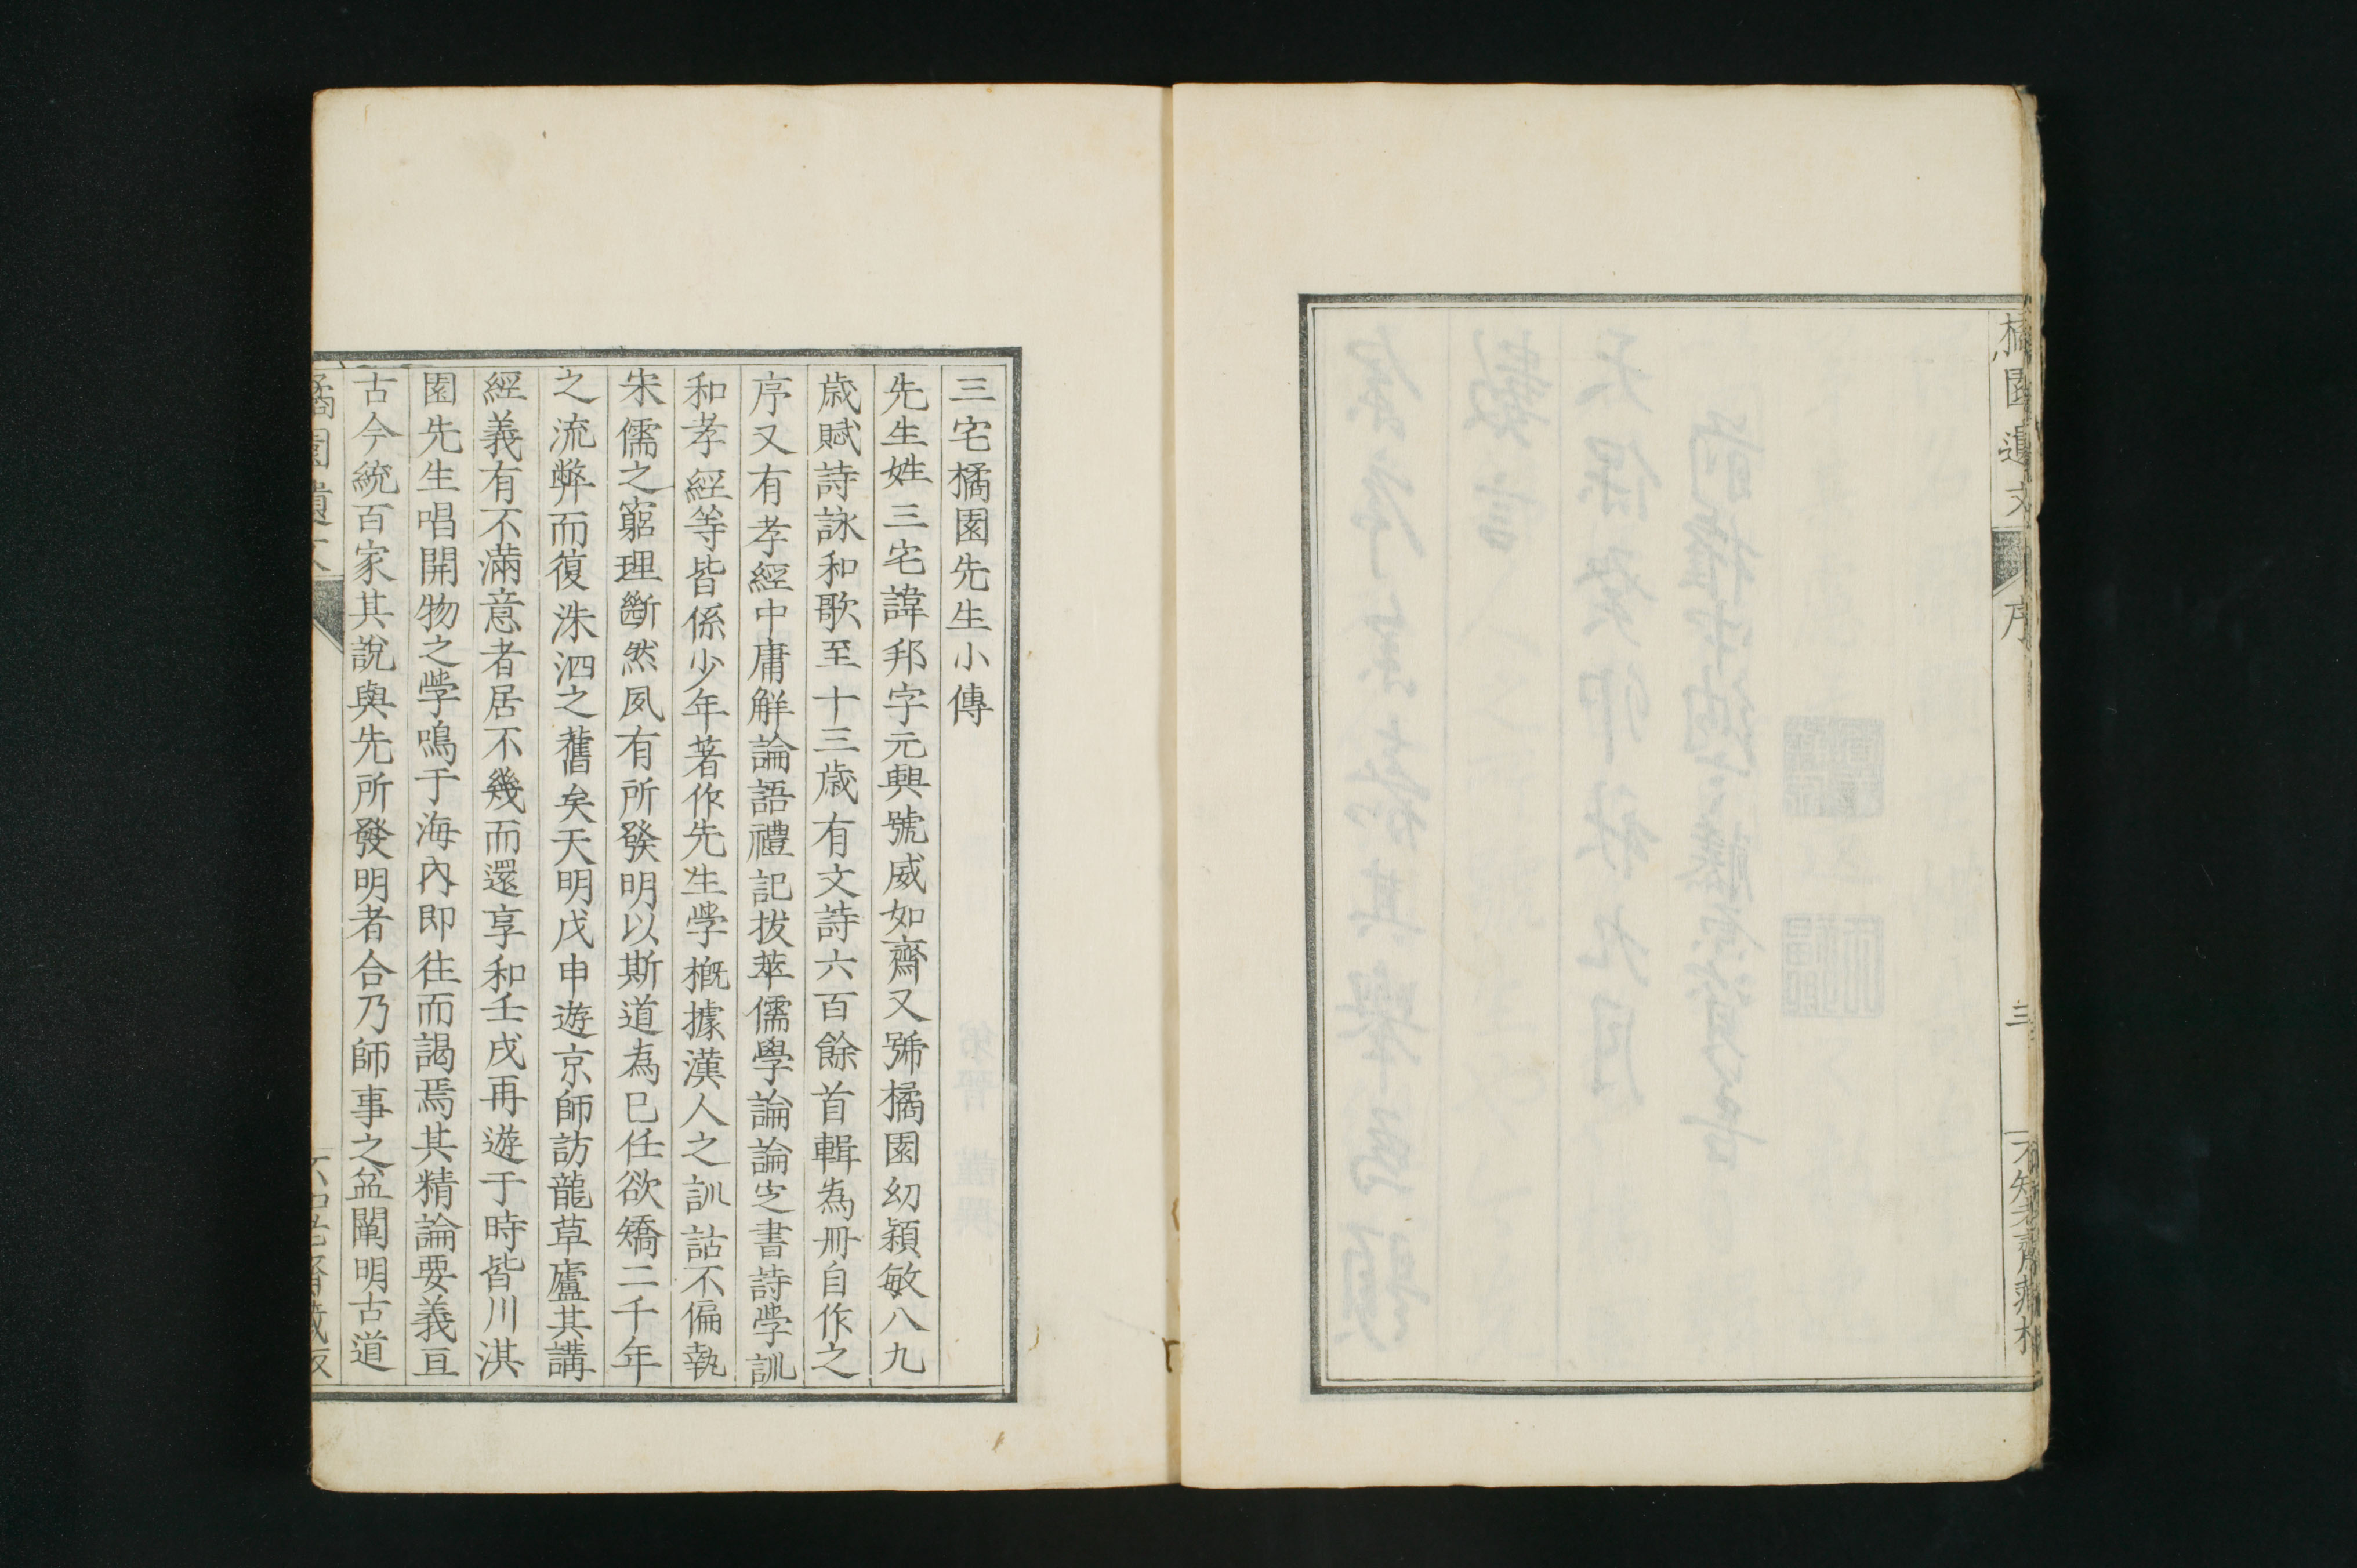 橘園遺文
序
三
不知老齋藏板
三宅橘園先生小傳
先生姓三宅諱邦字元興號威如齋又號橘園幼穎敏八九
歳賦詩詠和歌至十三歳有文詩六百餘首輯為冊自作之
序又有孝經中庸解論語禮記拔萃儒學論論定書詩學訓
和孝經等皆係少年著作先生學概據漢人之訓詁不偏執
宋儒之窮理斷然夙有所發明以斯道為己任欲矯二千年
之流弊而復洙泗之舊矣天明戊申遊京師訪龍草廬其講
經義有不滿意者居不幾而還享和壬戌再遊于時皆川淇
園先生唱開物之學鳴于海內即往而謁焉其精論要義亘
古今統百家其說與先所發明者合乃師事之益闡明古道
橘園遺文